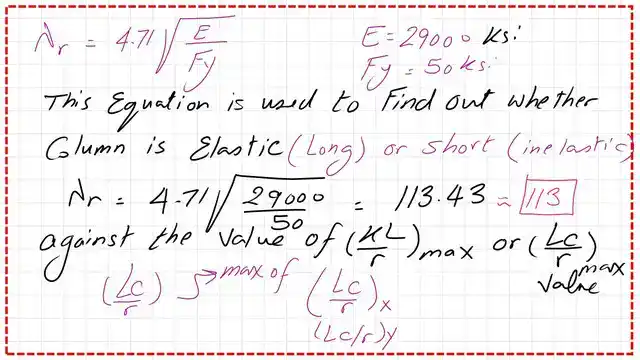 λr = 4.71 √(E/Fy) E = 29000 ksi
Fy = 50 ksi
This Equation is used to Find out whether
Column is Elastic (Long) or short (inelastic)
λr = 4.71 √(29000/50) = 113.43 ≈ 113
against the value of (KL/r)max or (Lc/r)max
value
(Lc/r) → max of (Lc/r)x
(Lc/r)y